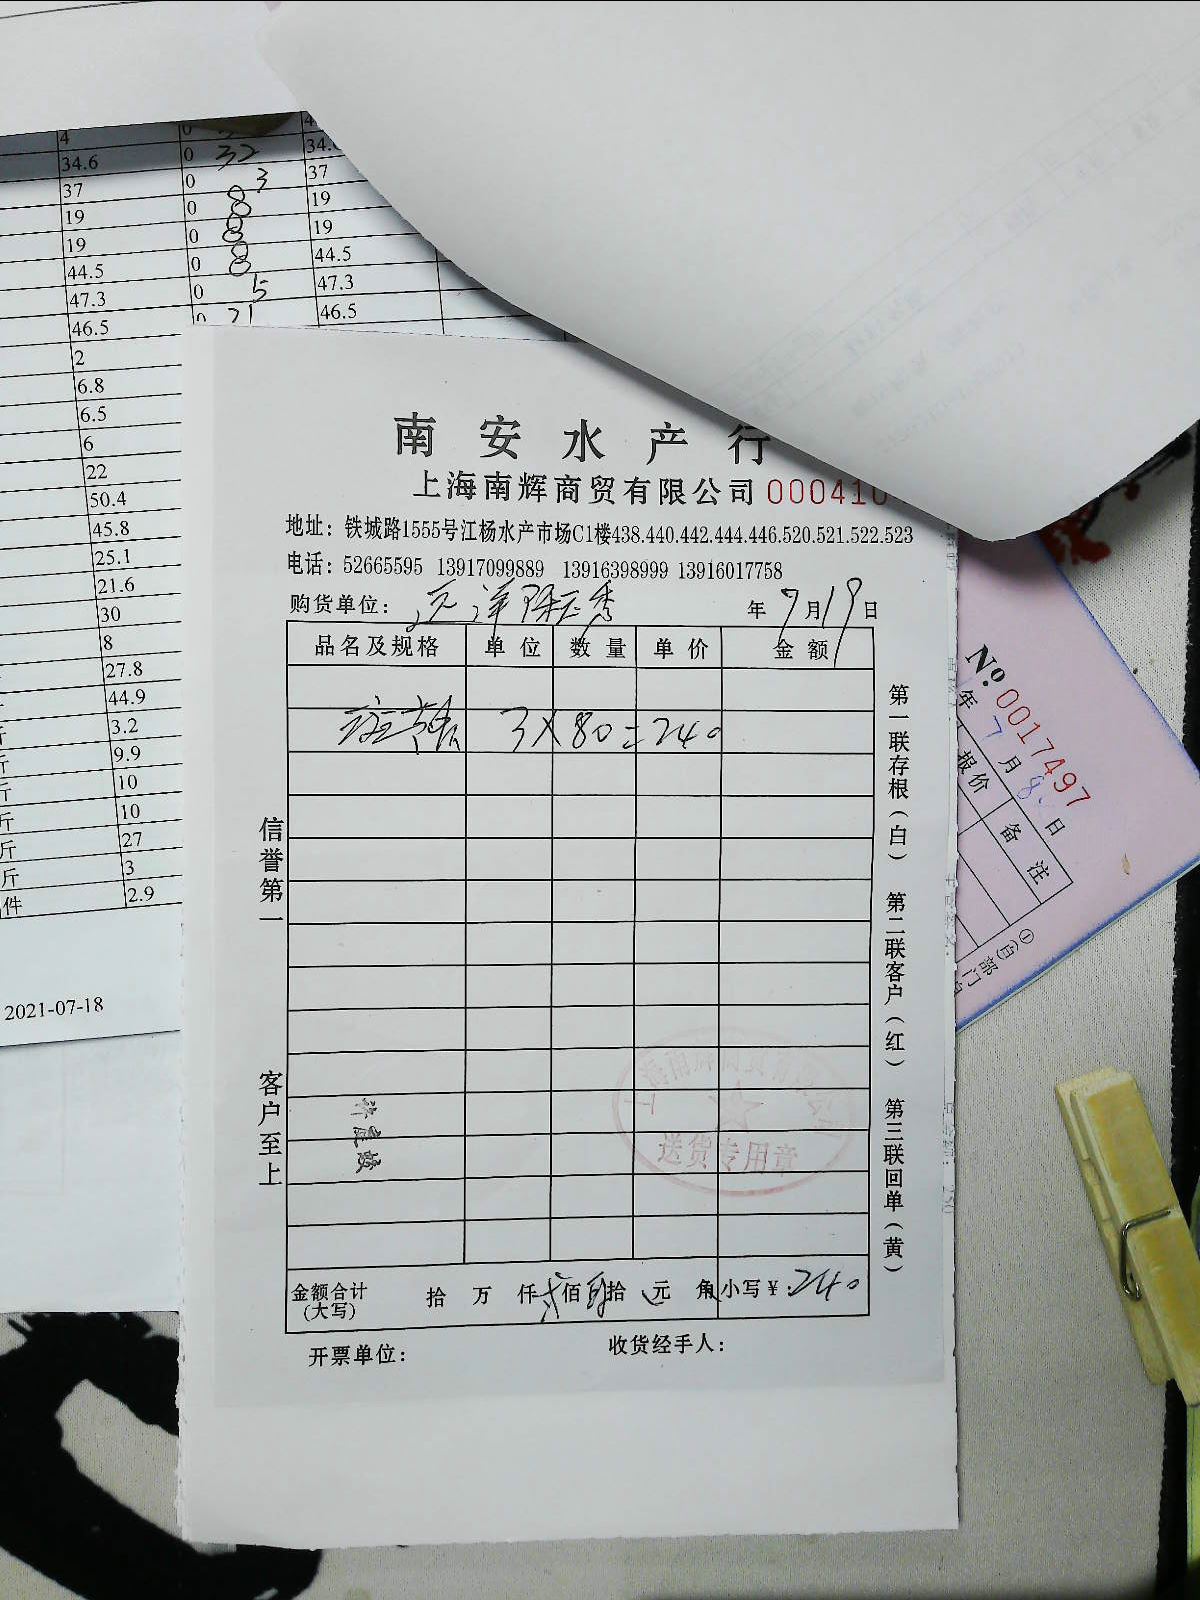 4
34.6 0 32 34.6
37 0 3 37
19 0 8 19
19 0 8 19
44.5 0 8 44.5
47.3 0 5 47.3
46.5 0 21 46.5
2
6.8
6.5
6
22
50.4
45.8
25.1
21.6
30
8
27.8
44.9
斤 3.2
斤 9.9
斤 10
斤 10
斤 27
斤 3
件 2.9
2021-07-18
南安水产行
上海南辉商贸有限公司 000410
地址：铁城路1555号江杨水产市场C1楼438.440.442.444.446.520.521.522.523
电话：52665595 13917099889 13916398999 13916017758
购货单位： 远洋 年 7 月 19 日
品名及规格 单位 数量 单价 金额
3×80=240
信誉第一
客户至上
第一联存根（白） 第二联客户（红） 第三联回单（黄）
送货专用章
金额合计（大写） 拾 万 仟 贰 佰 肆 拾 元 角 小写￥：240
开票单位： 收货经手人：
№ 0017497
年 7 月 8 日
报价 备注
①(白)部门